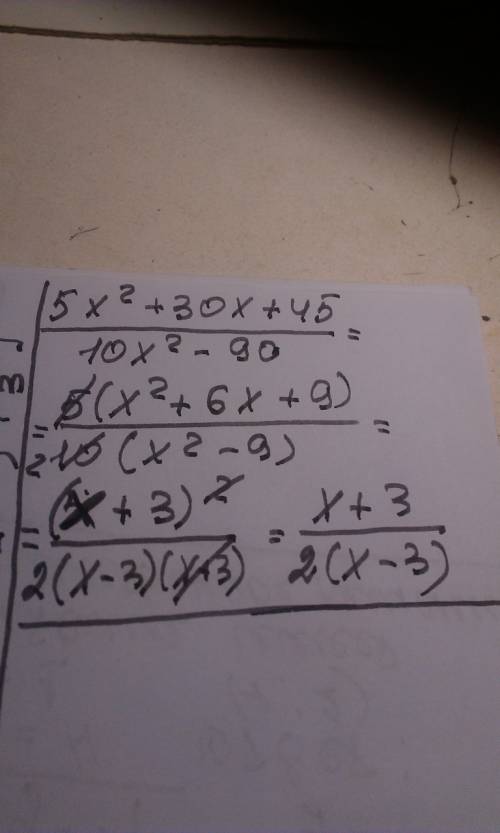 5x² + 30x + 45
10x² - 90 =
= 5(x² + 6x + 9)
2 10 (x² - 9) =
= (x + 3)²
2(x - 3)(x + 3) = x + 3
2(x - 3)